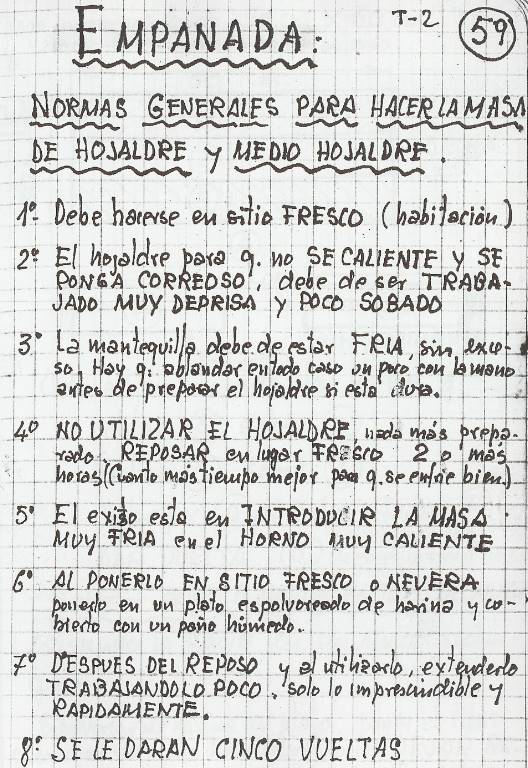 T-2 59
EMPANADA:
NORMAS GENERALES PARA HACER LA MASA
DE HOJALDRE y MEDIO HOJALDRE.
1º- Debe hacerse en sitio FRESCO (habitación)
2º El hojaldre para q. no SE CALIENTE y SE
PONGA CORREOSO, debe de ser TRABA-
JADO MUY DEPRISA y POCO SOBADO
3º La mantequilla debe de estar FRIA, sin exce-
so, Hay q. ablandar en todo caso un poco con la mano
antes de preparar el hojaldre si está dura.
4º NO UTILIZAR EL HOJALDRE, nada más prepa-
rado. REPOSAR en lugar FRESCO 2 o más
horas (Cuanto más tiempo mejor para q. se enfrie bien)
5º El exito esta en INTRODUCIR LA MASA
MUY FRIA en el HORNO MUY CALIENTE
6º AL PONERLO EN SITIO FRESCO o NEVERA
ponerlo en un plato espolvoreado de harina y cu-
bierto con un paño húmedo.
7º DESPUES DEL REPOSO y al utilizarlo, extenderlo
TRABAJANDOLO POCO, solo lo imprescindible y
RAPIDAMENTE.
8º: SE LE DARAN CINCO VUELTAS